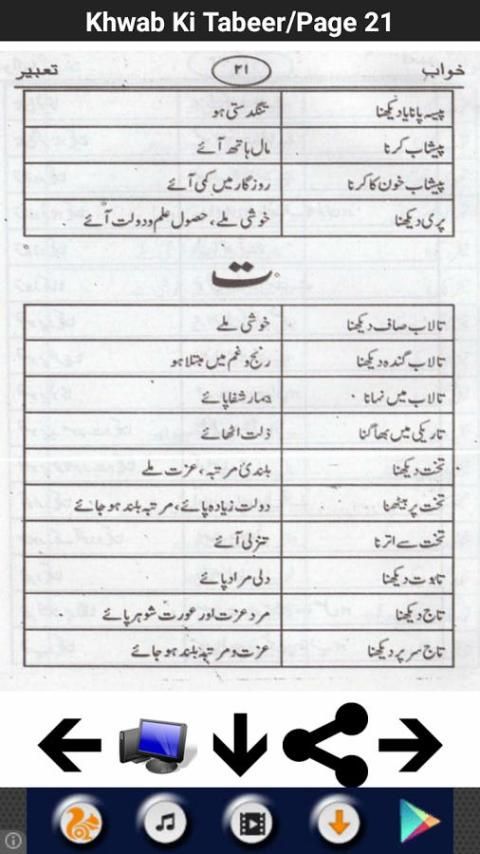 Khwab Ki Tabeer/Page 21
خواب ۲۱ تعبیر
پیسہ پانا یا دیکھنا تنگدستی ہو
پیشاب کرنا مال ہاتھ آئے
پیشاب خون کا کرنا روزگار میں کمی آئے
پری دیکھنا خوشی ملے، حصول علم و دولت آئے
ت
تالاب صاف دیکھنا خوشی ملے
تالاب گندہ دیکھنا رنج و غم میں مبتلا ہو
تالاب میں نہانا بیمار شفا پائے
تاریکی میں بھاگنا ذلت اٹھائے
تخت دیکھنا بلندیٔ مرتبہ، عزت ملے
تخت پر بیٹھنا دولت زیادہ پائے، مرتبہ بلند ہو جائے
تخت سے اترنا تنزلی آئے
تابوت دیکھنا دلی مراد پائے
تاج دیکھنا مرد عزت اور عورت شوہر پائے
تاج سر پر دیکھنا عزت و مرتبہ بلند ہو جائے